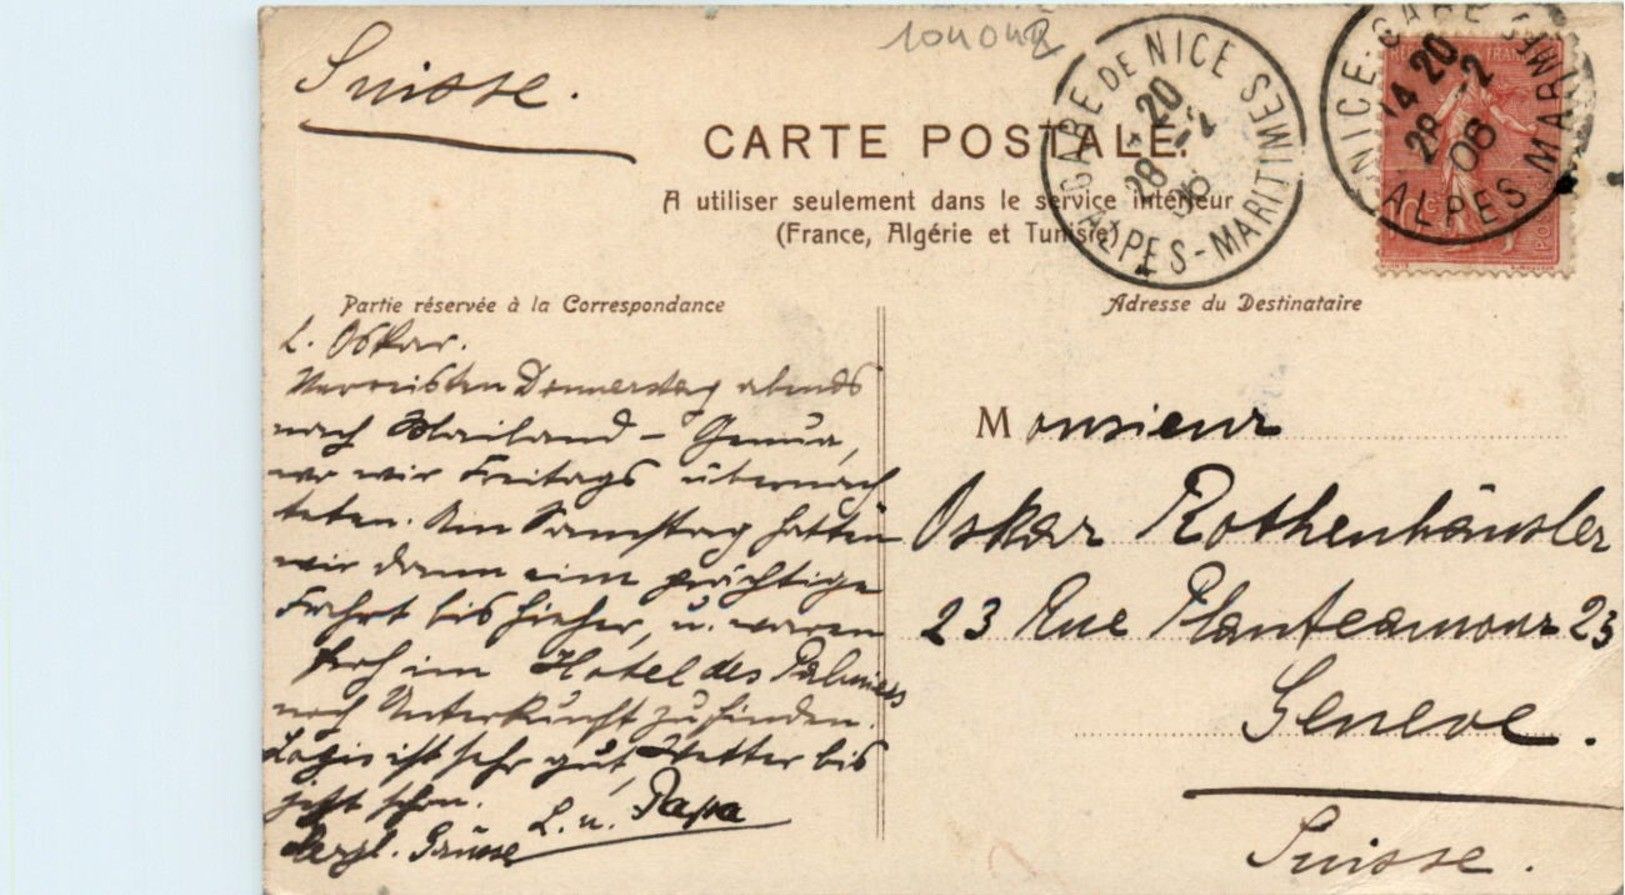 Suisse.
CARTE POSTALE.
A utiliser seulement dans le service intérieur
(France, Algérie et Tunisie)
GARE DE NICE
20
28 -2
ALPES-MARITIMES
NICE-GARE
14 20
28 -2
06
ALPES MARITIMES
Partie réservée à la Correspondance
L. Oskar.
Verreisten Donnerstag abends
nach Mailand - Genua,
wo wir Freitags übernach
teten. Am Samstag hatten
wir dann eine prächtige
Fahrt bis hieher, u. waren
froh im Hotel des Palmiers
noch Unterkunft zu finden.
Logis ist sehr gut, Wetter bis
jetzt schön.
Herzl. Grüsse L. u. Papa
Adresse du Destinataire
Monsieur
Oskar Rothenhäusler
23 Rue Planteamour 23
Geneve.
Suisse.